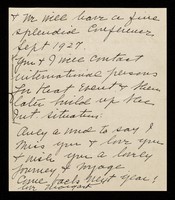 & We will have a fine
splendid Conference
Sept 1927.
You & I will contact
international persons
for that event & then
later build up the
Int situation.
Only a word to say I
Miss you & love you
& wish you a lovely
Journey & voyage
Come back next year!